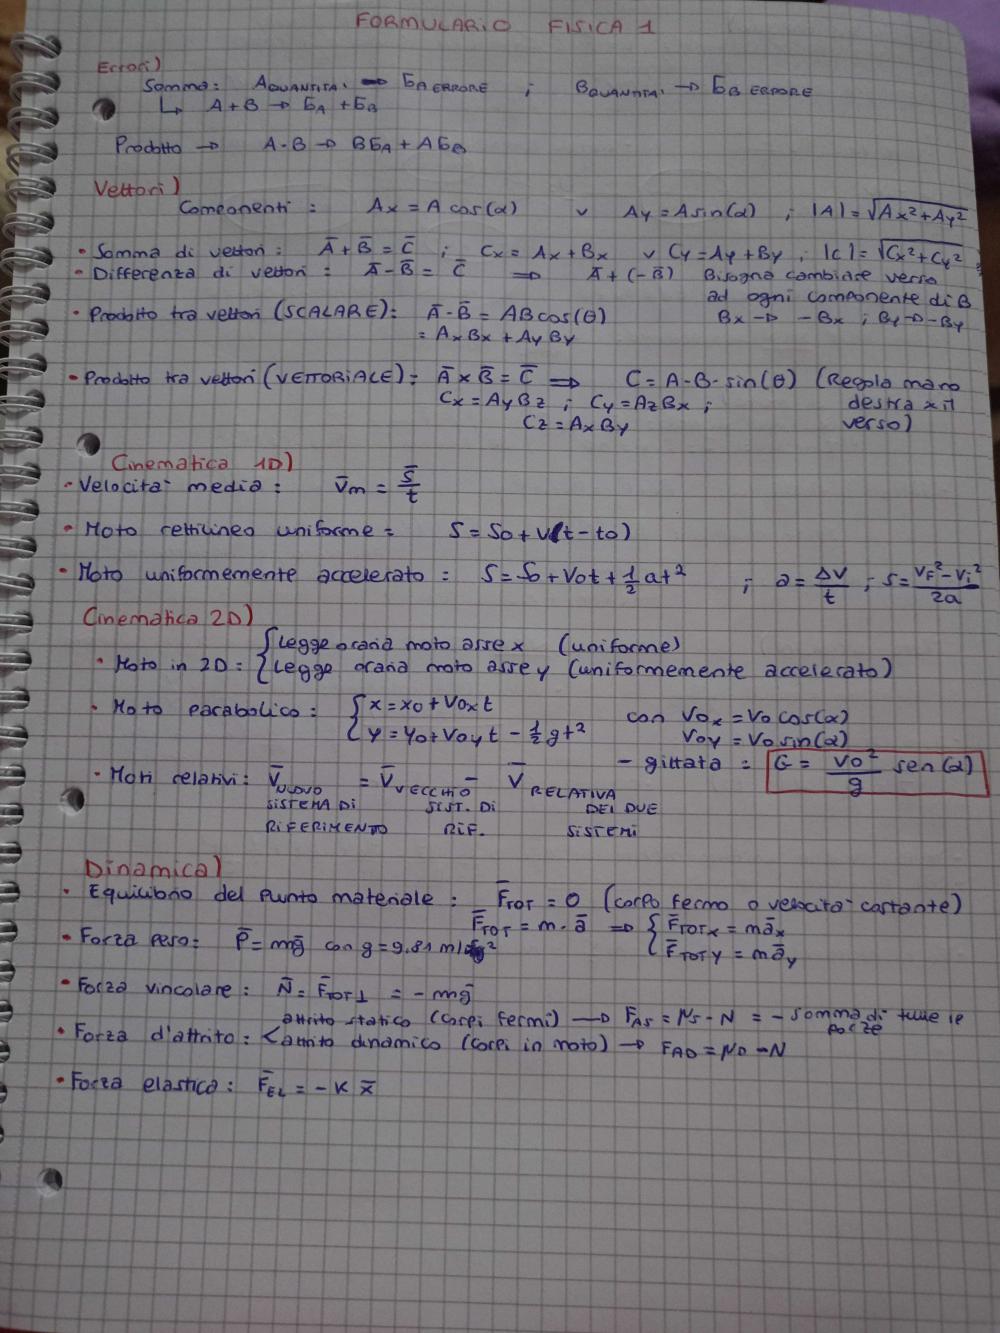 FORMULARIO FISICA 1
Errori)
Somma: A QUANTITA' → δA ERRORE ; B QUANTITA' → δB ERRORE
↳ A+B → δA + δB
Prodotto → A·B → BδA + AδB
Vettori)
Componenti: Ax = A cos(α) v Ay = A sin(α) ; |A| = √(Ax²+Ay²)
• Somma di vettori: A̅ + B̅ = C̅ ; Cx = Ax + Bx v Cy = Ay + By ; |C| = √(Cx²+Cy²) ;
• Differenza di vettori: A̅ - B̅ = C̅ ⇒ A̅ + (-B̅) Bisogna cambiare verso
ad ogni componente di B
Bx → -Bx ; By → -By
• Prodotto tra vettori (SCALARE): A̅·B̅ = AB cos(θ)
= AxBx + AyBy
• Prodotto tra vettori (VETTORIALE): A̅ × B̅ = C̅ ⇒ C = A·B·sin(θ) (Regola mano
destra x il
verso)
Cx = AyBz ; Cy = AzBx ;
Cz = AxBy
Cinematica 1D)
• Velocità media: V̅m = s̅/t
• Moto rettilineo uniforme = S = So + V(t-to)
• Moto uniformemente accelerato: S = So + Vot + 1/2 at² ; a = ΔV/t ; s = (VF² - Vi²)/2a
Cinematica 2D)
• Moto in 2D = { Legge oraria moto asse x (uniforme)
Legge oraria moto asse y (uniformemente accelerato)
• Moto parabolico: { x = xo + Vox t
y = yo + Voy t - 1/2 gt²
con Vox = Vo cos(α)
Voy = Vo sin(α)
- gittata = G = Vo²/g sen(α)
• Moti relativi: V̅ NUOVO SISTEMA DI RIFERIMENTO = V̅ VECCHIO SIST. DI RIF. - V̅ RELATIVA DEI DUE SISTEMI
Dinamica)
• Equilibrio del Punto materiale: F̅TOT = 0 (corpo fermo o velocità costante)
F̅TOT = m·a̅ ⇒ { F̅TOTx = ma̅x
F̅TOTy = ma̅y
• Forza Peso: P̅ = mg̅ con g = 9.81 m/s²
• Forza vincolare: N̅ = F̅TOT⊥ = -mg̅
• Forza d'attrito: < attrito statico (corpi fermi) → FAS = μs·N = - somma di tutte le forze
attrito dinamico (corpi in moto) → FAD = μD·N
• Forza elastica: F̅EL = -K x̅